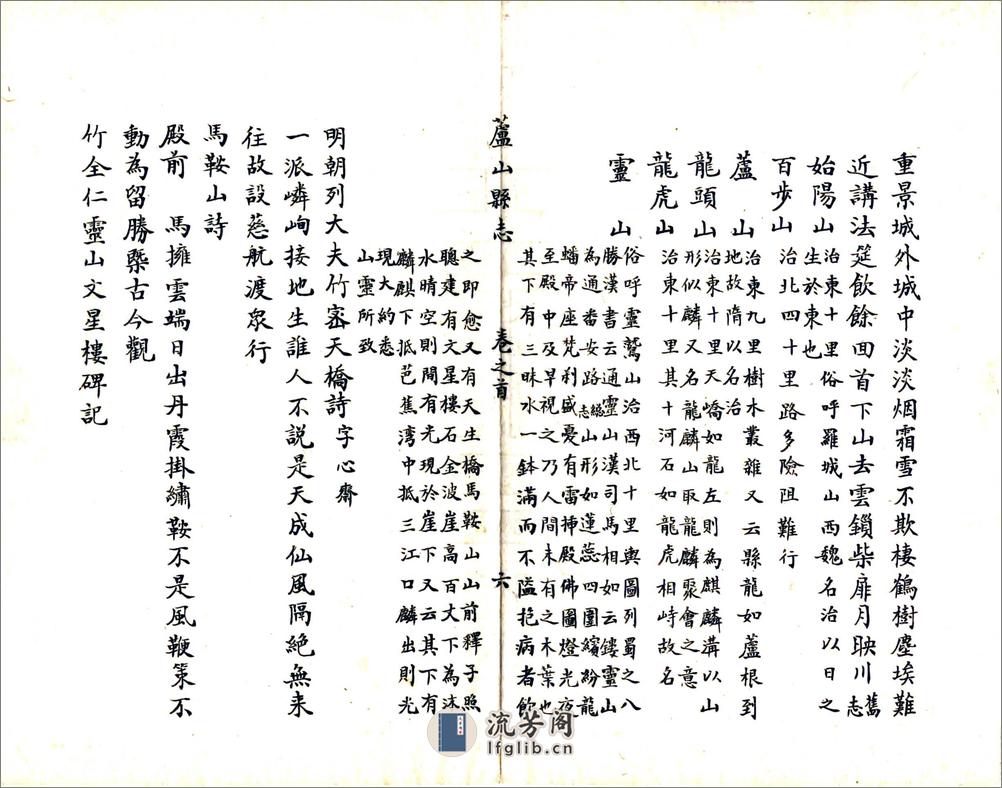 重景城外城中淡淡烟霜雪不欺棲鶴樹塵埃難
近講法筵飲餘回首下山去雲鎖柴扉月映川舊志
始陽山治東十里俗呼羅城山西魏名治以日之
生於東也
百步山治北四十里路多險阻難行
蘆山治東九里樹木叢雜又云縣龍如蘆根到
地故隋以名治
龍頭山治東十里天嶠如龍左則為麒麟溝以山
形似麟又名龍麟山取龍麟聚會之意
龍虎山治東十里其十河石如龍虎相峙故名
靈山俗呼靈鷲山治西北十里輿圖列蜀之八
勝漢書云通靈山漢司馬相如云鏤靈山
為通番安路總志山形如蓮蕊四圍繽紛龍
蟠帝座梵刹盛憂有雷挿殿佛圖燈光夜
至殿中及早視之乃人間未有之木葉也
其下有三昧水一鉢滿而不隘抱病者飲
蘆山縣志
卷之首
六
之即愈又有天生橋馬鞍山山前釋子照
聰建有文星樓石金波崖高百丈下為沐
水晴空則間有光現於崖下又云其下有
麟麒下抵芭蕉湾中抵三江口麟出則光
現大約悉
山靈所致
明朝列大夫竹密天橋詩字心齋
一派嶙峋接地生誰人不說是天成仙風隔絕無来
往故設慈航渡眾行
馬鞍山詩
殿前馬擁雲端日出丹霞掛繡鞍不是風鞭策不
動為留勝槩古今觀
竹全仁靈山文星樓碑記
流芳阁
lfglib.cn